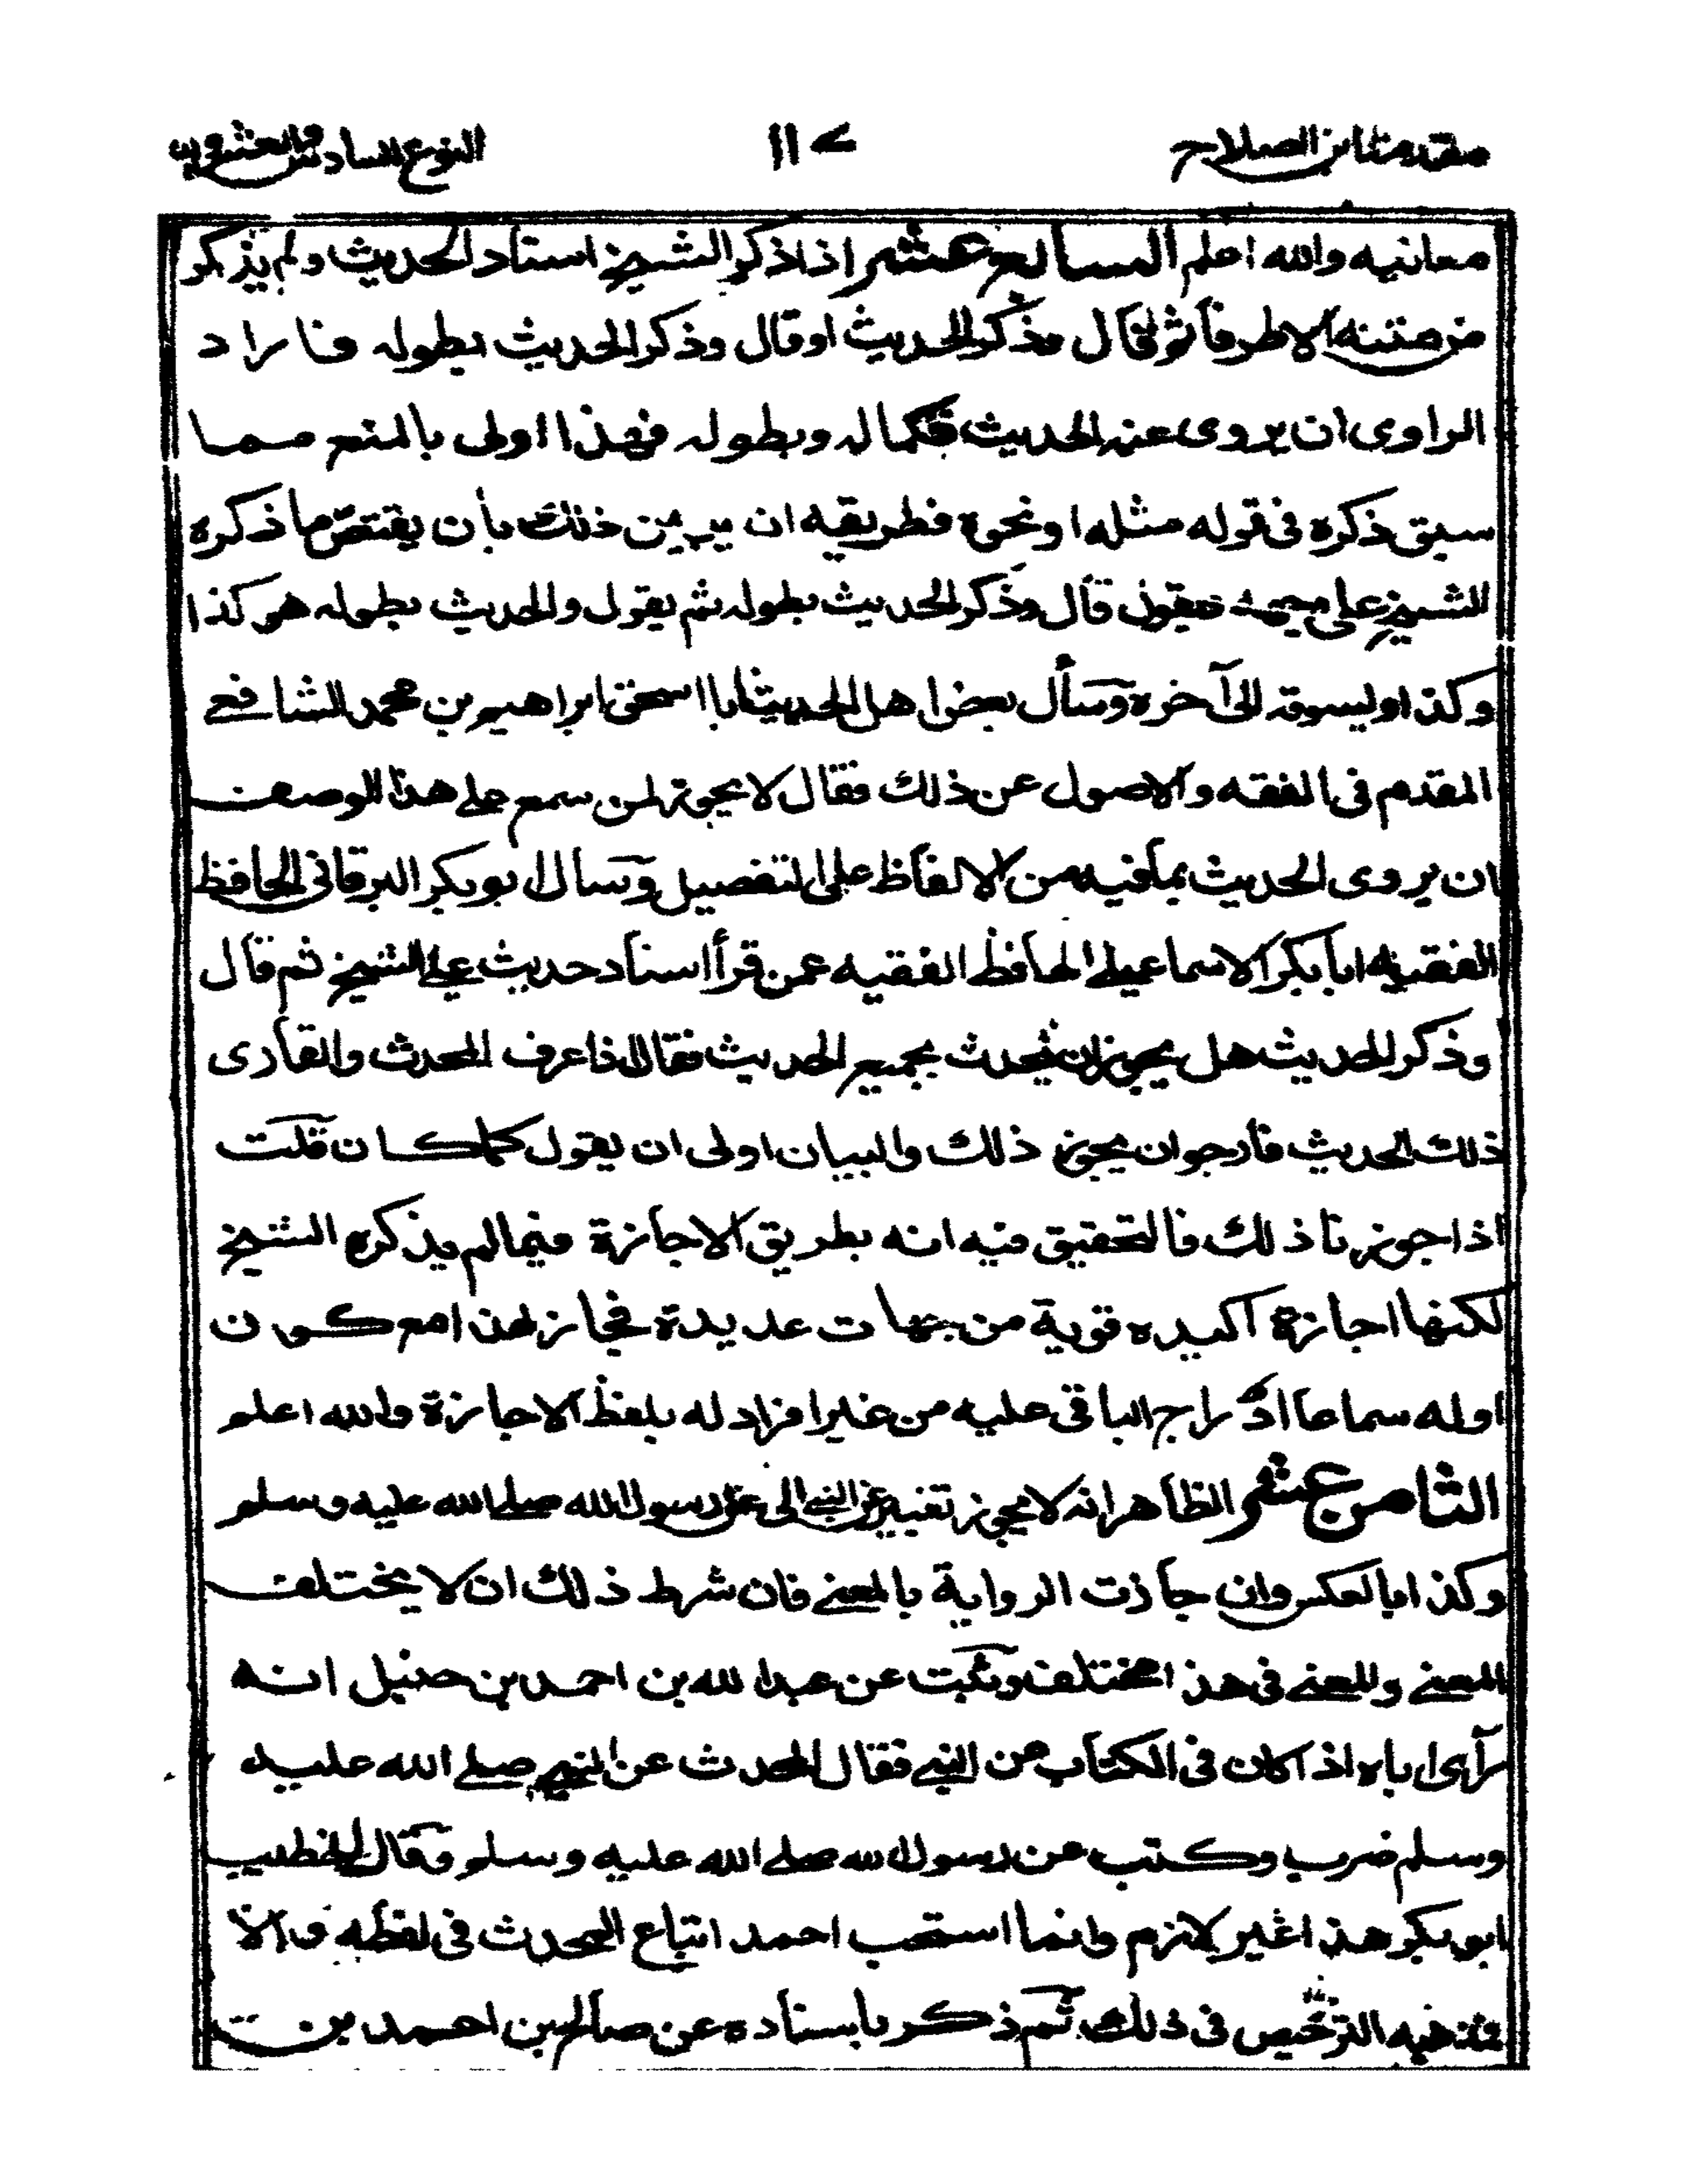 مقدمة ابن الصلاح
١١٧
النوع السادس والعشرون
معانيه والله اعلم السابع عشر اذا ذكر الشيخ اسناد الحديث ولم يذكر
من متنه الا طرفا ثم قال وذكر الحديث او قال وذكر الحديث بطوله فاراد
الراوى ان يروى عنه الحديث بكماله وبطوله فهذا اولى بالمنع مما
سبق ذكره فى قوله مثله او نحوه فطريقه ان يبين ذلك بأن يقتص ما ذكره
الشيخ على وجهه فيقول قال وذكر الحديث بطوله ثم يقول والحديث بطوله هو كذا
وكذا ويسوقه الى آخره وسأل بعض اهل الحديث ابا اسحق ابراهيم بن محمد الشافعى
المقدم فى الفقه والاصول عن ذلك فقال لا يجوز لمن سمع على هذا الوصف
ان يروى الحديث بما فيه من الالفاظ على التفصيل وسأل ابو بكر البرقانى الحافظ
الفقيه ابا بكر الاسماعيلى الحافظ الفقيه عمن قرأ اسناد حديث على الشيخ ثم قال
وذكر الحديث هل يجوز ان يحدث بجميع الحديث فقال اذا عرف المحدث والقارى
ذلك الحديث فأرجو ان يجوز ذلك والبيان اولى ان يقول كما كان قلت
اذا جوزنا ذلك فالتحقيق فيه انه بطريق الاجازة فيما لم يذكره الشيخ
لكنها اجازة اكيده قوية من جهات عديدة فجاز لهذا مع كون
اوله سماعا ادراج الباقى عليه من غير افراد له بلفظ الاجازة والله اعلم
الثامن عشر الظاهر انه لا يجوز تغيير عن النبى الى عن رسول الله صلى الله عليه وسلم
وكذا بالعكس وان جازت الرواية بالمعنى فان شرط ذلك ان لا يختلف
المعنى والمعنى فى هذا مختلف وثبت عن عبد الله بن احمد بن حنبل انه
رأى اباه اذا كان فى الكتاب عن النبى فقال المحدث عن النبى صلى الله عليه
وسلم ضرب وكتب عن رسول الله صلى الله عليه وسلم وقال الخطيب
ابو بكر هذا غير لازم وانما استحب احمد اتباع المحدث فى لفظه والا
فمذهبه الترخيص فى ذلك ثم ذكر باسناده عن صالح بن احمد بن